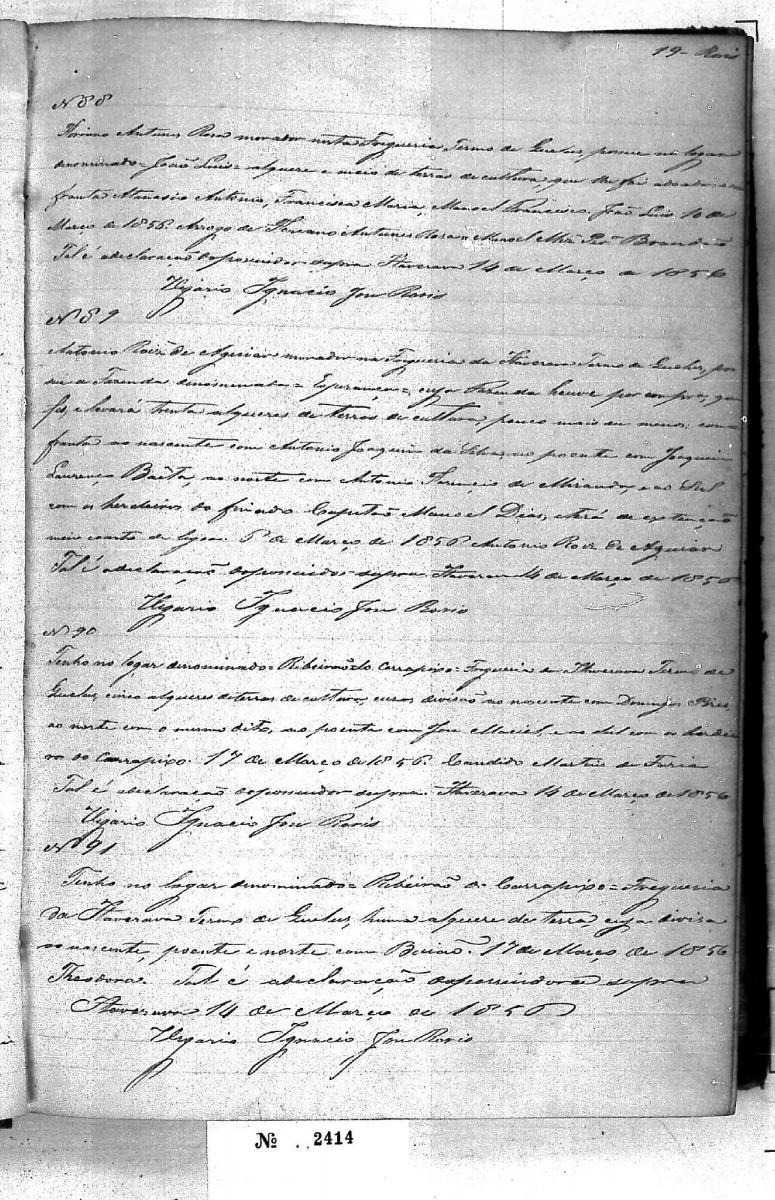 19- Roris
Nº 88
Antunes Rosa morador nesta Freguesia Termo de Queluz, possue no lugar
denominado = João Luis = alquere e meio de terras de cultura, que
Atanasio Antonio, Francisca Maria, Manoel Francisco, João Luis 10 de
Março de 1856. Arrogo de Antunes Rosa = Manoel Brandão
Tal é a declaração do possuidor supra Itaverava 14 de Março de 1856
Vigario Ignacio José Roris
Nº 89
Antonio Roiz de Aguiar morador na Freguesia da Itaverava Termo de Queluz, pos
sue a Fazenda denominada = Esperança =, cuja Fazenda houve por compra, que
fes, e levará trenta alqueres de terras de cultura, pouco mais ou menos; con
fronta ao nascente com Antonio Joaquim da Silva, ao poente com Joaquim
Lourenço Baêta, ao norte com Antonio Florencio de Miranda, e ao Sul
com os herdeiros do finado Capitão Manoel Dias, e terá de extenção
meio coarto de legoa. 6 de Março de 1856 Antonio Roiz de Aguiar
Tal é a declaração do possuidor supra Itaverava 14 de Março de 1856
Vigario Ignacio José Roris
Nº 90
Tenho no logar denominado = Ribeirão do Carrapixo = Freguesia da Itaverava Termo de
Queluz, cinco alqueres de terras de cultura, cuja divisão ao nascente com Domingos Pires,
ao norte com o mesmo dito, ao poente com José Maciel, e ao sul com os herdei
ros do Carrapixo. 17 de Março de 1856. Candido Martis de Faria
Tal é a declaração do possuidor supra. Itaverava 14 de Março de 1856
Vigario Ignacio José Roris
Nº 91
Tenho no logar denominado = Ribeirão do Carrapixo = Freguesia
da Itaverava Termo de Queluz, huma alquere de terra, cuja divisa
ao nascente, poente e norte com Baião. 17 de Março de 1856
Theodora. Tal é a declaração da possuidora supra
Itaverava 14 de Março de 1856
Vigario Ignacio José Roris
Nº 2414